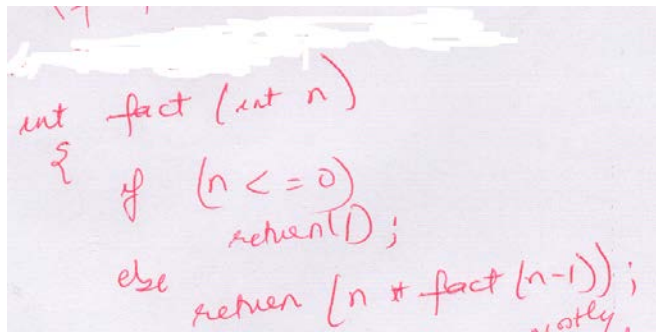 int fact (int n)
{
if (n <= 0)
return(1);
else
return (n * fact (n-1));